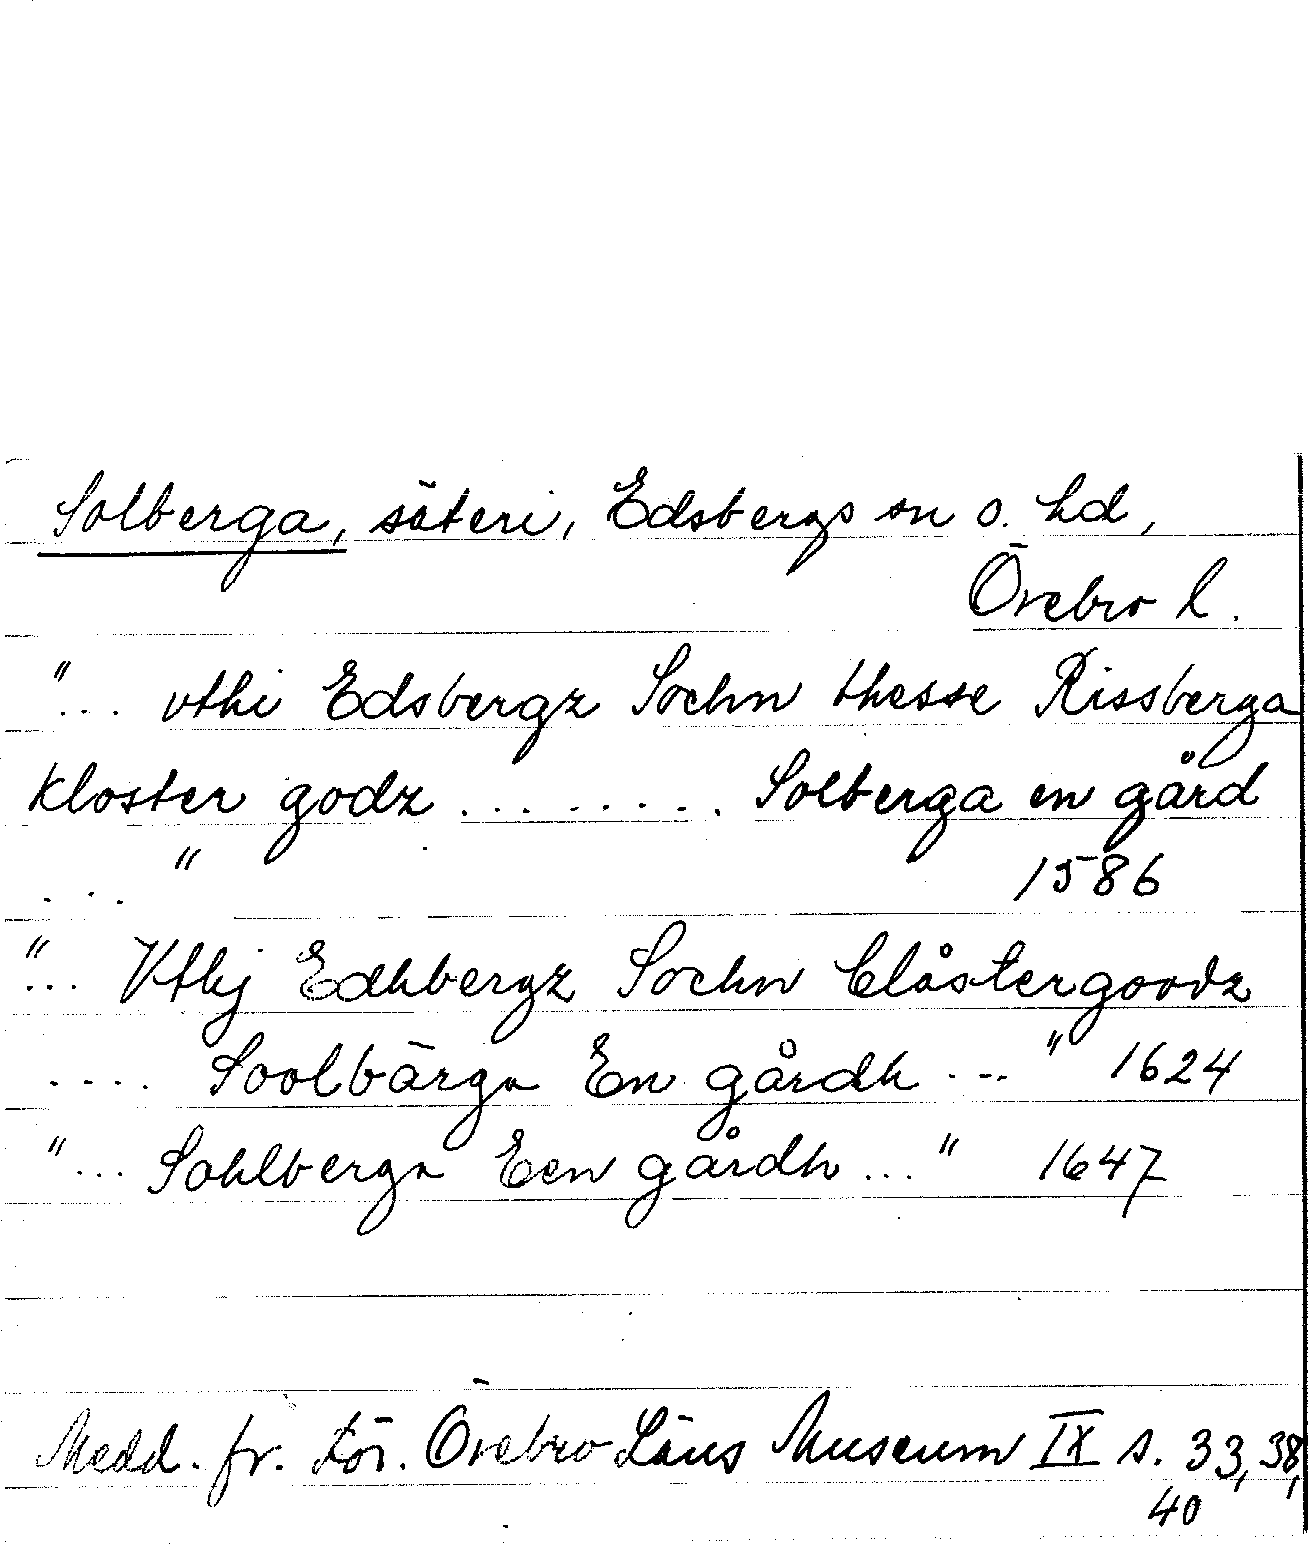 Solberga, säteri, Edsbergs sn o. hd,
Örebro l.
"... vthi Edsbergz Sochn thesse Rissberga
kloster godz ......... Solberga en gård
... " 1586
"... Vthj Edhbergz Sochn Clåstergoodz
.... Soolbärga En gårdh ... " 1624
"... Sohlberga Een gårdh ... " 1647
Medd. fr. För. Örebro Läns Museum IX s. 33, 38,
40